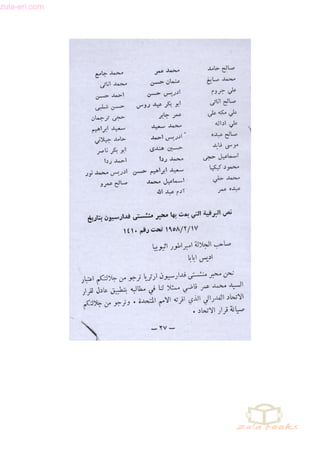 zula-eri.com
صالح حامد محمد عمر محمد جامع
محمد صايغ عثمان حسن محمد اتاتى
علي جروم ادريس حسن احمد حسن
صالح اتاتى ابو بكر عيد روس حسن شلبى
علي مكه علي عمر جابر حجى ترجمان
علي اداله محمد سعيد سعيد ابراهيم
صالح عبده ادريس احمد حامد جيلاني
موسى قايد حسين هندى ابو بكر ناصر
اسماعيل حجى محمد ردا احمد ردا
محمود كيكيا سعيد ابراهيم حسن ادريس محمد نور
محمد حقي اسماعيل محمد صالح عمرو
عبده عمر ادم عبد الله
نص البرقية التي بعث بها محبر منشستى فدارسيون بتاريخ
١٩٥٨/٢/١٧ تحت رقم ١٤١٠
صاحب الجلالة امبراطور اثيوبيا
اديس ابابا
نحن محبر منشستى فدارسيون ارتريا نرجو من جلالتكم اعتبار
السيد محمد عمر قاضي ممثلا لنا في مطالبه بتطبيق عادل لقرار
الاتحاد الفدرالي الذي اقرته الامم المتحدة . ونرجو من جلالتكم
صيانة قرار الاتحاد .
— ٢٧ —
zula books